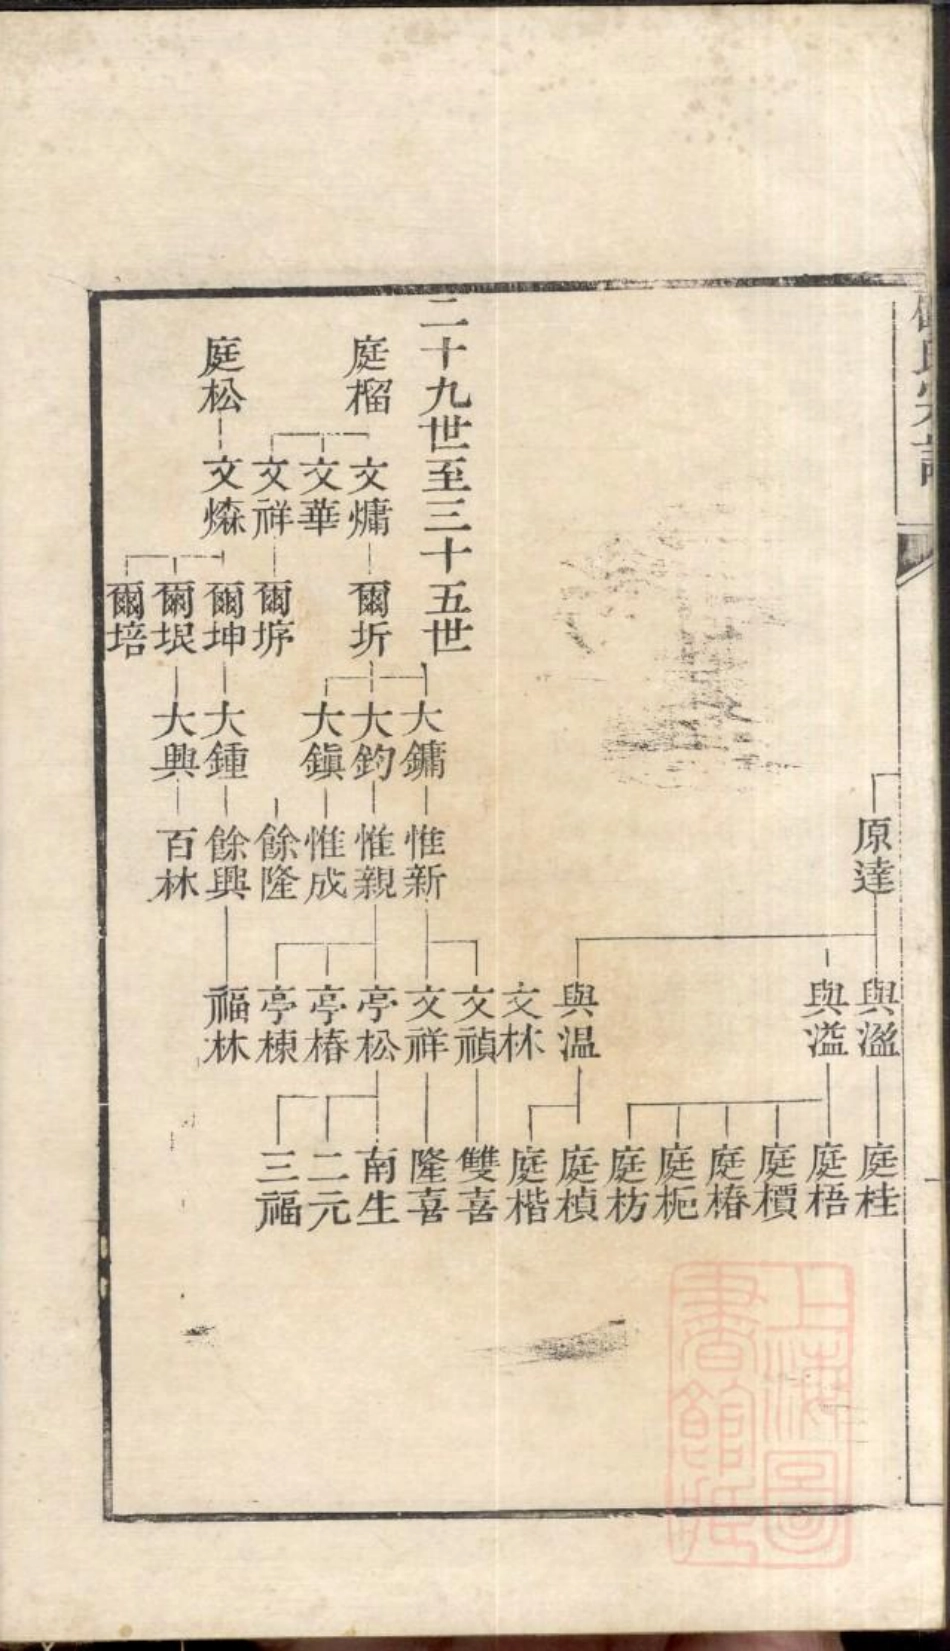 氏宗譜
原達
與溫
與溢
與温
庭桂
庭梧
庭檟
庭椿
庭杝
庭枋
庭楨
庭楷
二十九世至三十五世
庭榴
文爌
文華
文祥
爾圻
爾垿
大鏞
大鈞
大鎮
惟新
惟親
惟成
餘隆
文林
文禎
文祥
亭松
亭椿
亭棟
雙喜
隆喜
南生
二元
三福
庭松
文燊
爾坤
爾垠
爾培
大鍾
大興
餘興
百林
福林
上海圖書館藏